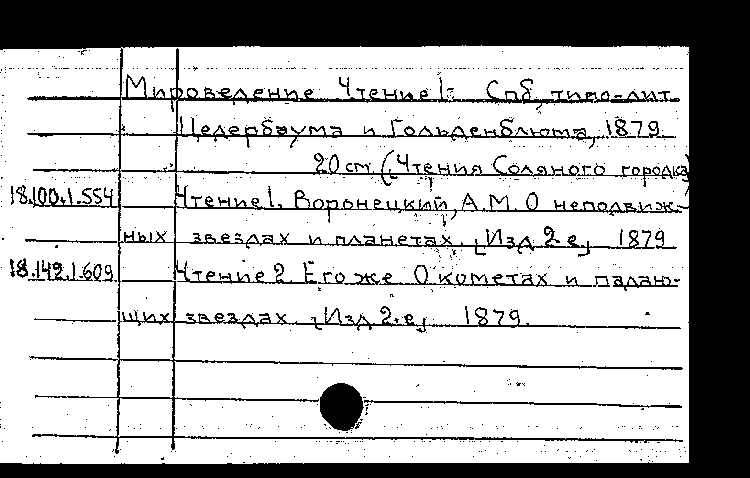 Мироведение Чтение 1- Спб, типо-лит.
Цедербаума и Гольденблюма, 1879.
20 см. (Чтения Соляного городка)
18.100.1.554 Чтение 1. Воронецкий, А.М. О неподвиж-
ных звездах и планетах. [Изд 2-е] 1879
18.142.1.609 Чтение 2. Его же О кометах и падаю-
щих звездах. [Изд 2-е] 1879.